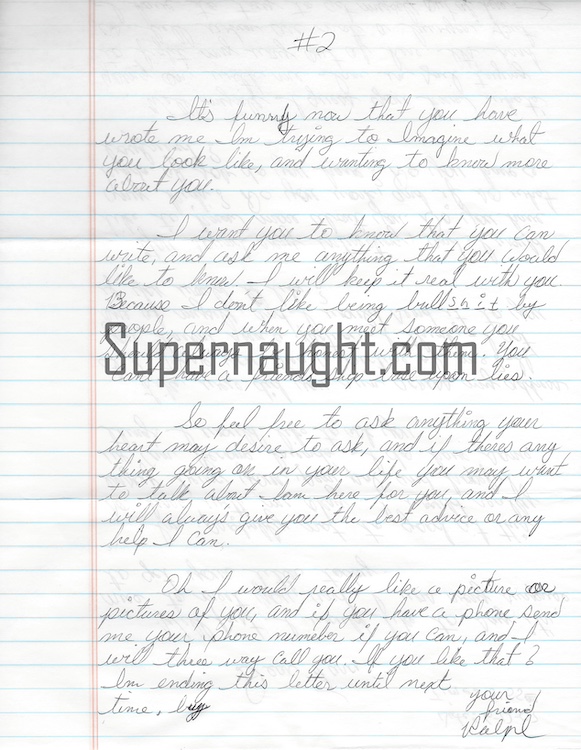 #2
It's funny now that you have
wrote me Im trying to Imagine what
you look like, and wanting to know more
about you.
I want you to know that you can
write, and ask me anything that you would
like to know I will keep it real with you.
Because I don't like being bull shit by
people, and when you meet someone you
should always be honest with them. You
cant have a friendship base upon lies.
Supernaught.com
So feel free to ask anything your
heart may desire to ask, and if theres any
thing going on in your life you may want
to talk about I am here for you, and I
will always give you the best advice or any
help I can.
Oh I would really like a picture or
pictures of you, and if you have a phone send
me your phone number if you can, and I
will three way call you. If you like that?
Im ending this letter until next
time, by
your
friend
Ralph